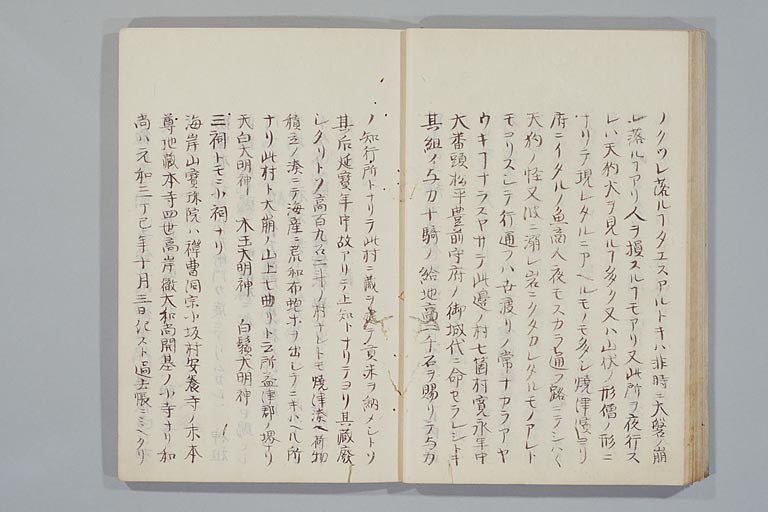 ノクツレ落ルヿタエスアルトキハ非時ニ大磐ノ崩
レ落ルヿアリ人ヲ損スルヿモアリ又此所ヲ夜行ス
レハ天狗火ヲ見ルヿ多ク又ハ山伏ノ形僧ノ形ニ
ナリテ現レタルニアヘルモノモ多シ焼津濱ヨリ
府ニイタルノ魚商人夜モスカラ通フ路ニテシハ〱
天狗ノ怪又波ニ溺レ岩ニクタカレタルモノアレト
モコリスシテ行通フハ世渡リノ常ナカラアヤ
ウキヿナラスヤサテ此邊ノ村七箇村寛永年中
大番頭松平豊前守府ノ御城代ニ命セラレシトキ
其組ノ与力十騎ノ給地二千石ヲ賜リテ与力
ノ知行所トナリテ此村ニ蔵ヲ造ラ貢米ヲ納メシトソ
其后延寶年中故アリテ上知トナリテヨリ其蔵廢
レタリトソ高百九石二斗ノ村ナレトモ焼津湊ヘ荷物
積立ノ湊ニテ海産ニ荒和布蛇ホヲ出シテニキハヘル所
ナリ此村ト大崩ノ山上七曲リト云所益津郡ノ堺ナリ
天白大明神 木王大明神 白鬚大明神
三祠トモニ小祠ナリ
海岸山寶珠院ハ禅曹洞宗小坂村安養寺ノ末本
尊地蔵本寺四世高岸徹大和尚開基ノ小寺ナリ和
尚ハ元和三丁巳年十月三日化スト過去帳ニミヘタリ